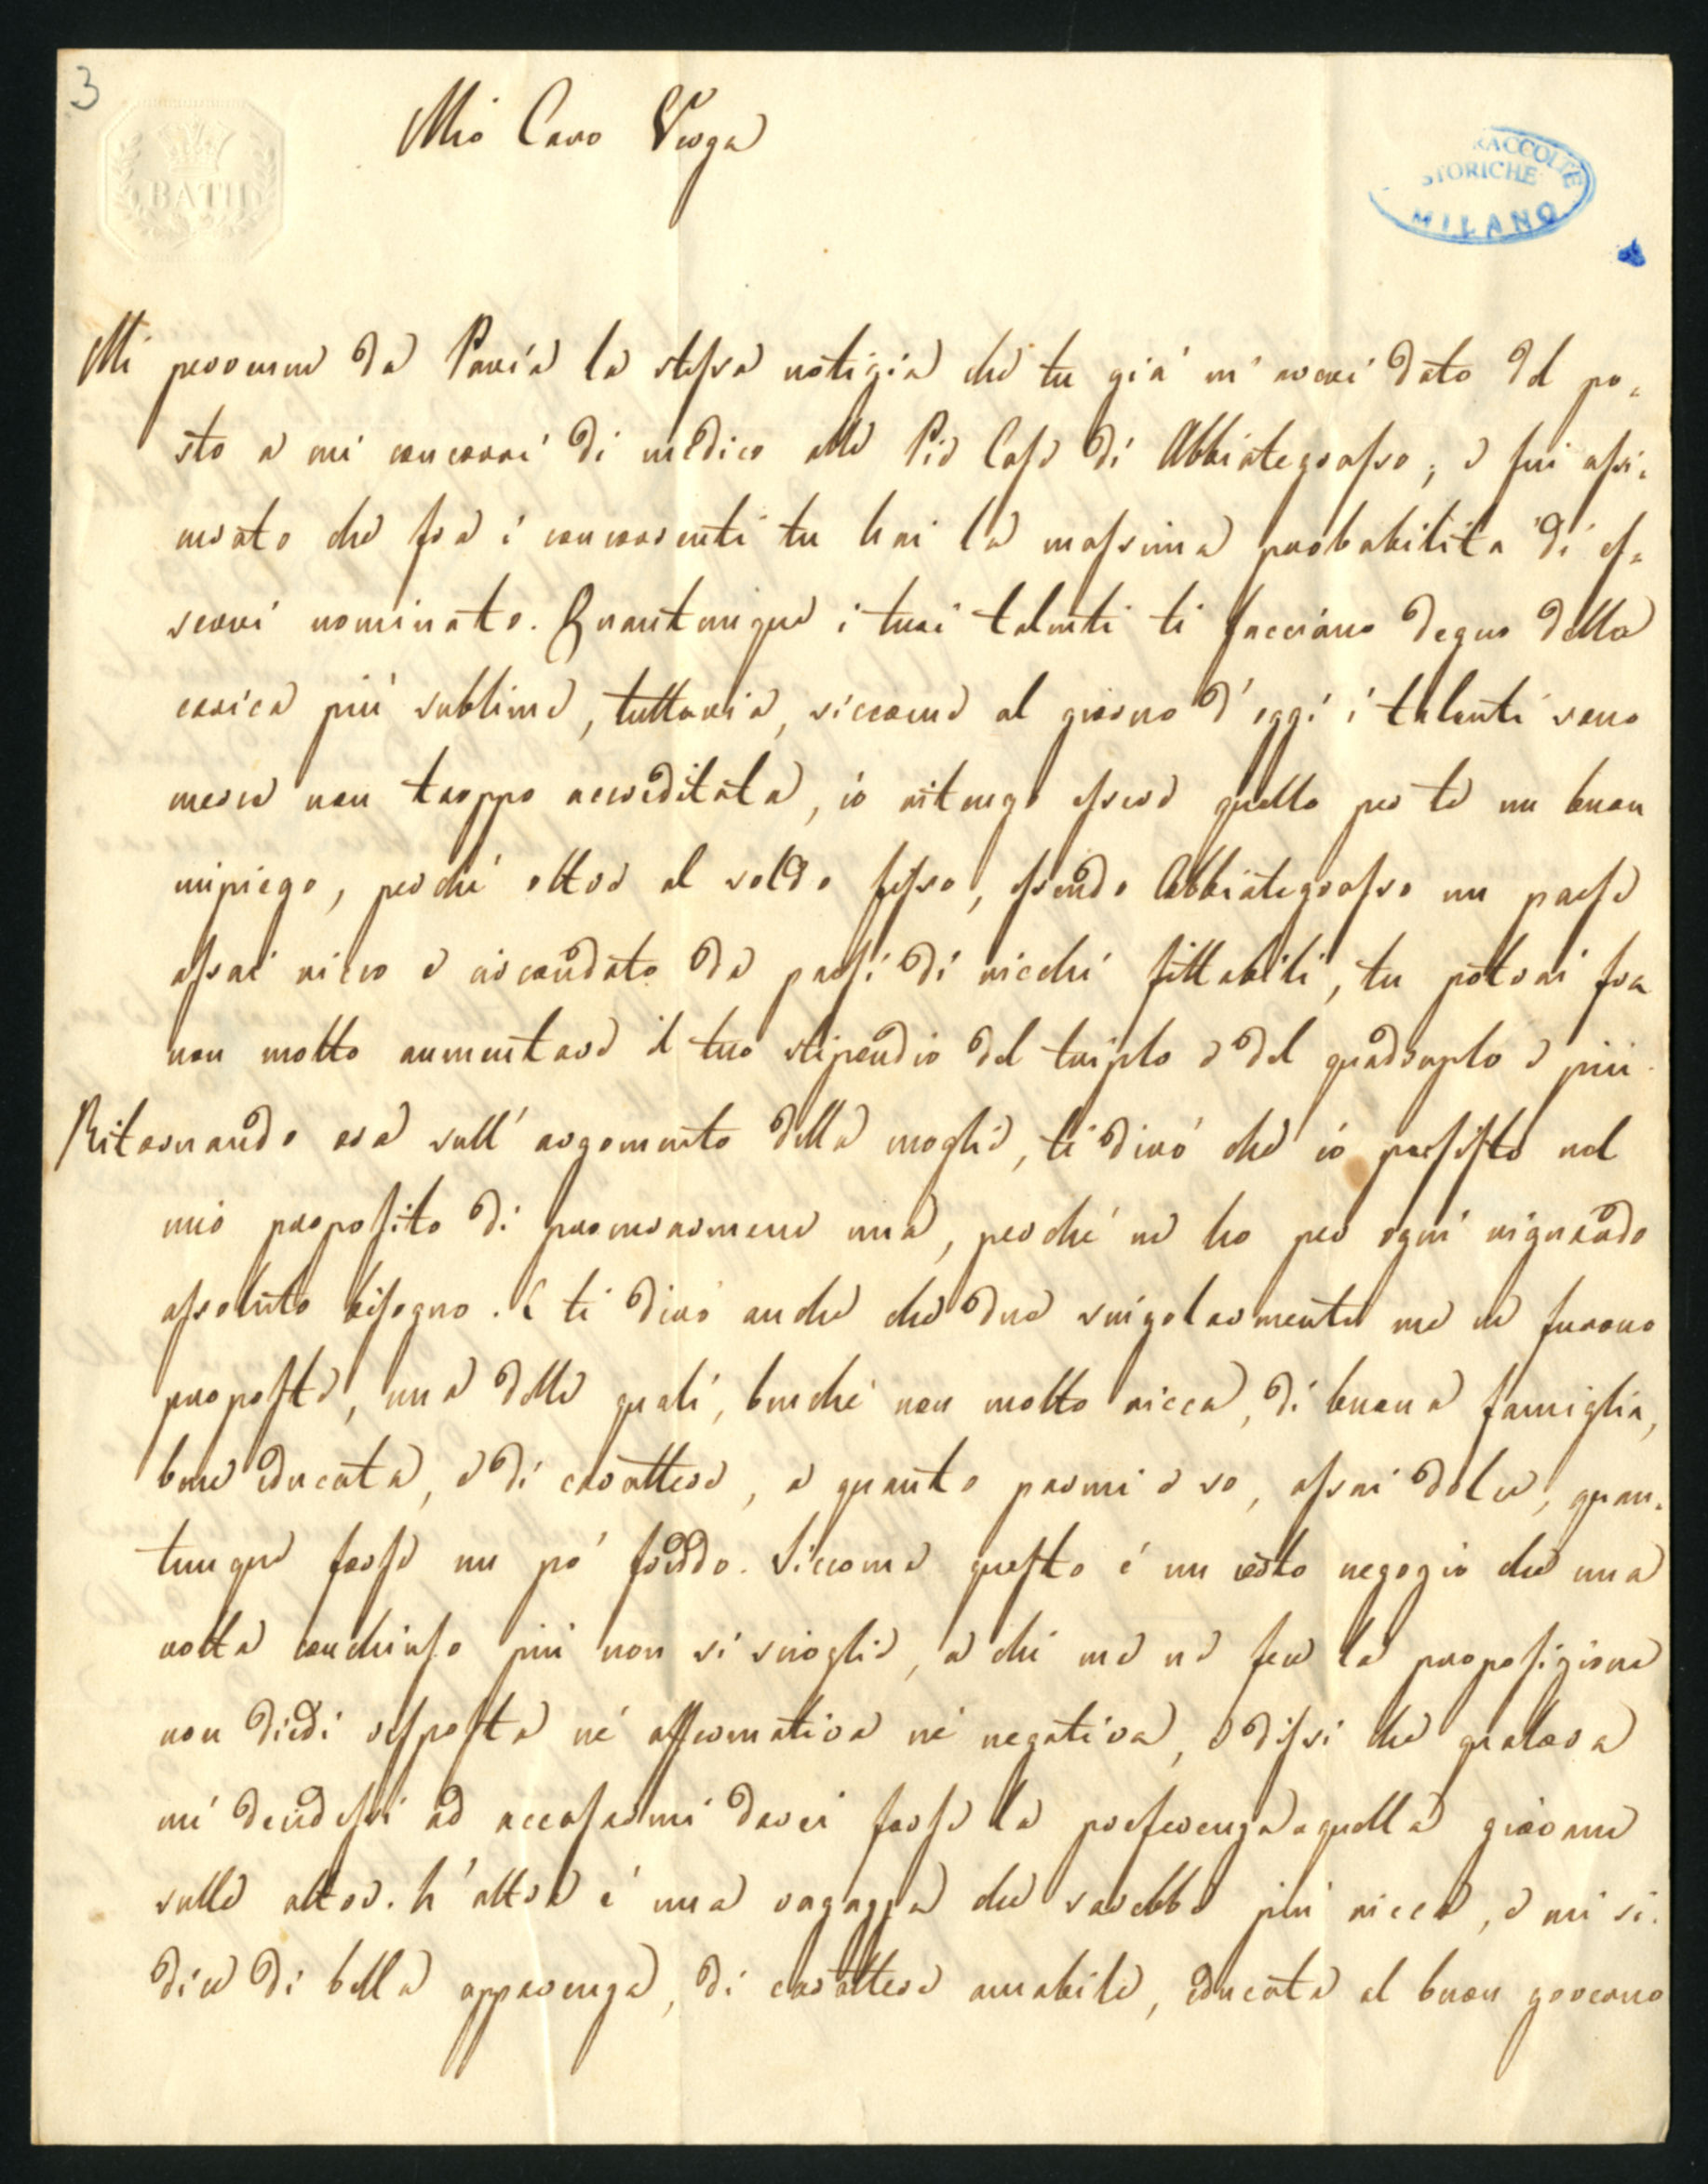 3
BATH
Mio Caro Verga
RACCOLTE
STORICHE
MILANO
Mi pervenne da Pavia la stessa notizia che tu già m'avevi dato del po-
sto a cui concorri di medico alle Pie Case di Abbiategrasso; e fui assi-
curato che fra i concorrenti tu hai la massima probabilità di es-
servi nominato. Quantunque i tuoi talenti ti facciano degno della
carica più sublime, tuttavia, siccome al giorno d'oggi i talenti sono
merce non troppo accreditata, io ritengo essere quello per te un buon
impiego, perché oltre al soldo fisso, essendo Abbiategrasso un paese
assai ricco e circondato da paesi di ricchi fittabili, tu potrai fra
non molto aumentare il tuo stipendio del triplo e del quadruplo e più.
Ritornando ora sull'argomento della moglie, ti dirò che io persisto nel
mio proposito di procurarmene una, perché ne ho per ogni riguardo
assoluto bisogno. E ti dirò anche che due singolarmente me ne furono
proposte, una delle quali, benché non molto ricca, di buona famiglia,
bene educata, e di carattere, a quanto parmi e so, assai dolce, quan-
tunque forse un pò freddo. Siccome questo è un certo negozio che una
volta conchiuso più non si scioglie, a chi me ne fece la proposizione
non diedi risposta né affermativa né negativa, e dissi che qualora
mi decidessi ad accasarmi darei forse la preferenza a quella giovane
sulle altre. L'altra è una ragazza che sarebbe più ricca, e mi si
dice di bella apparenza, di carattere amabile, educata al buon governo